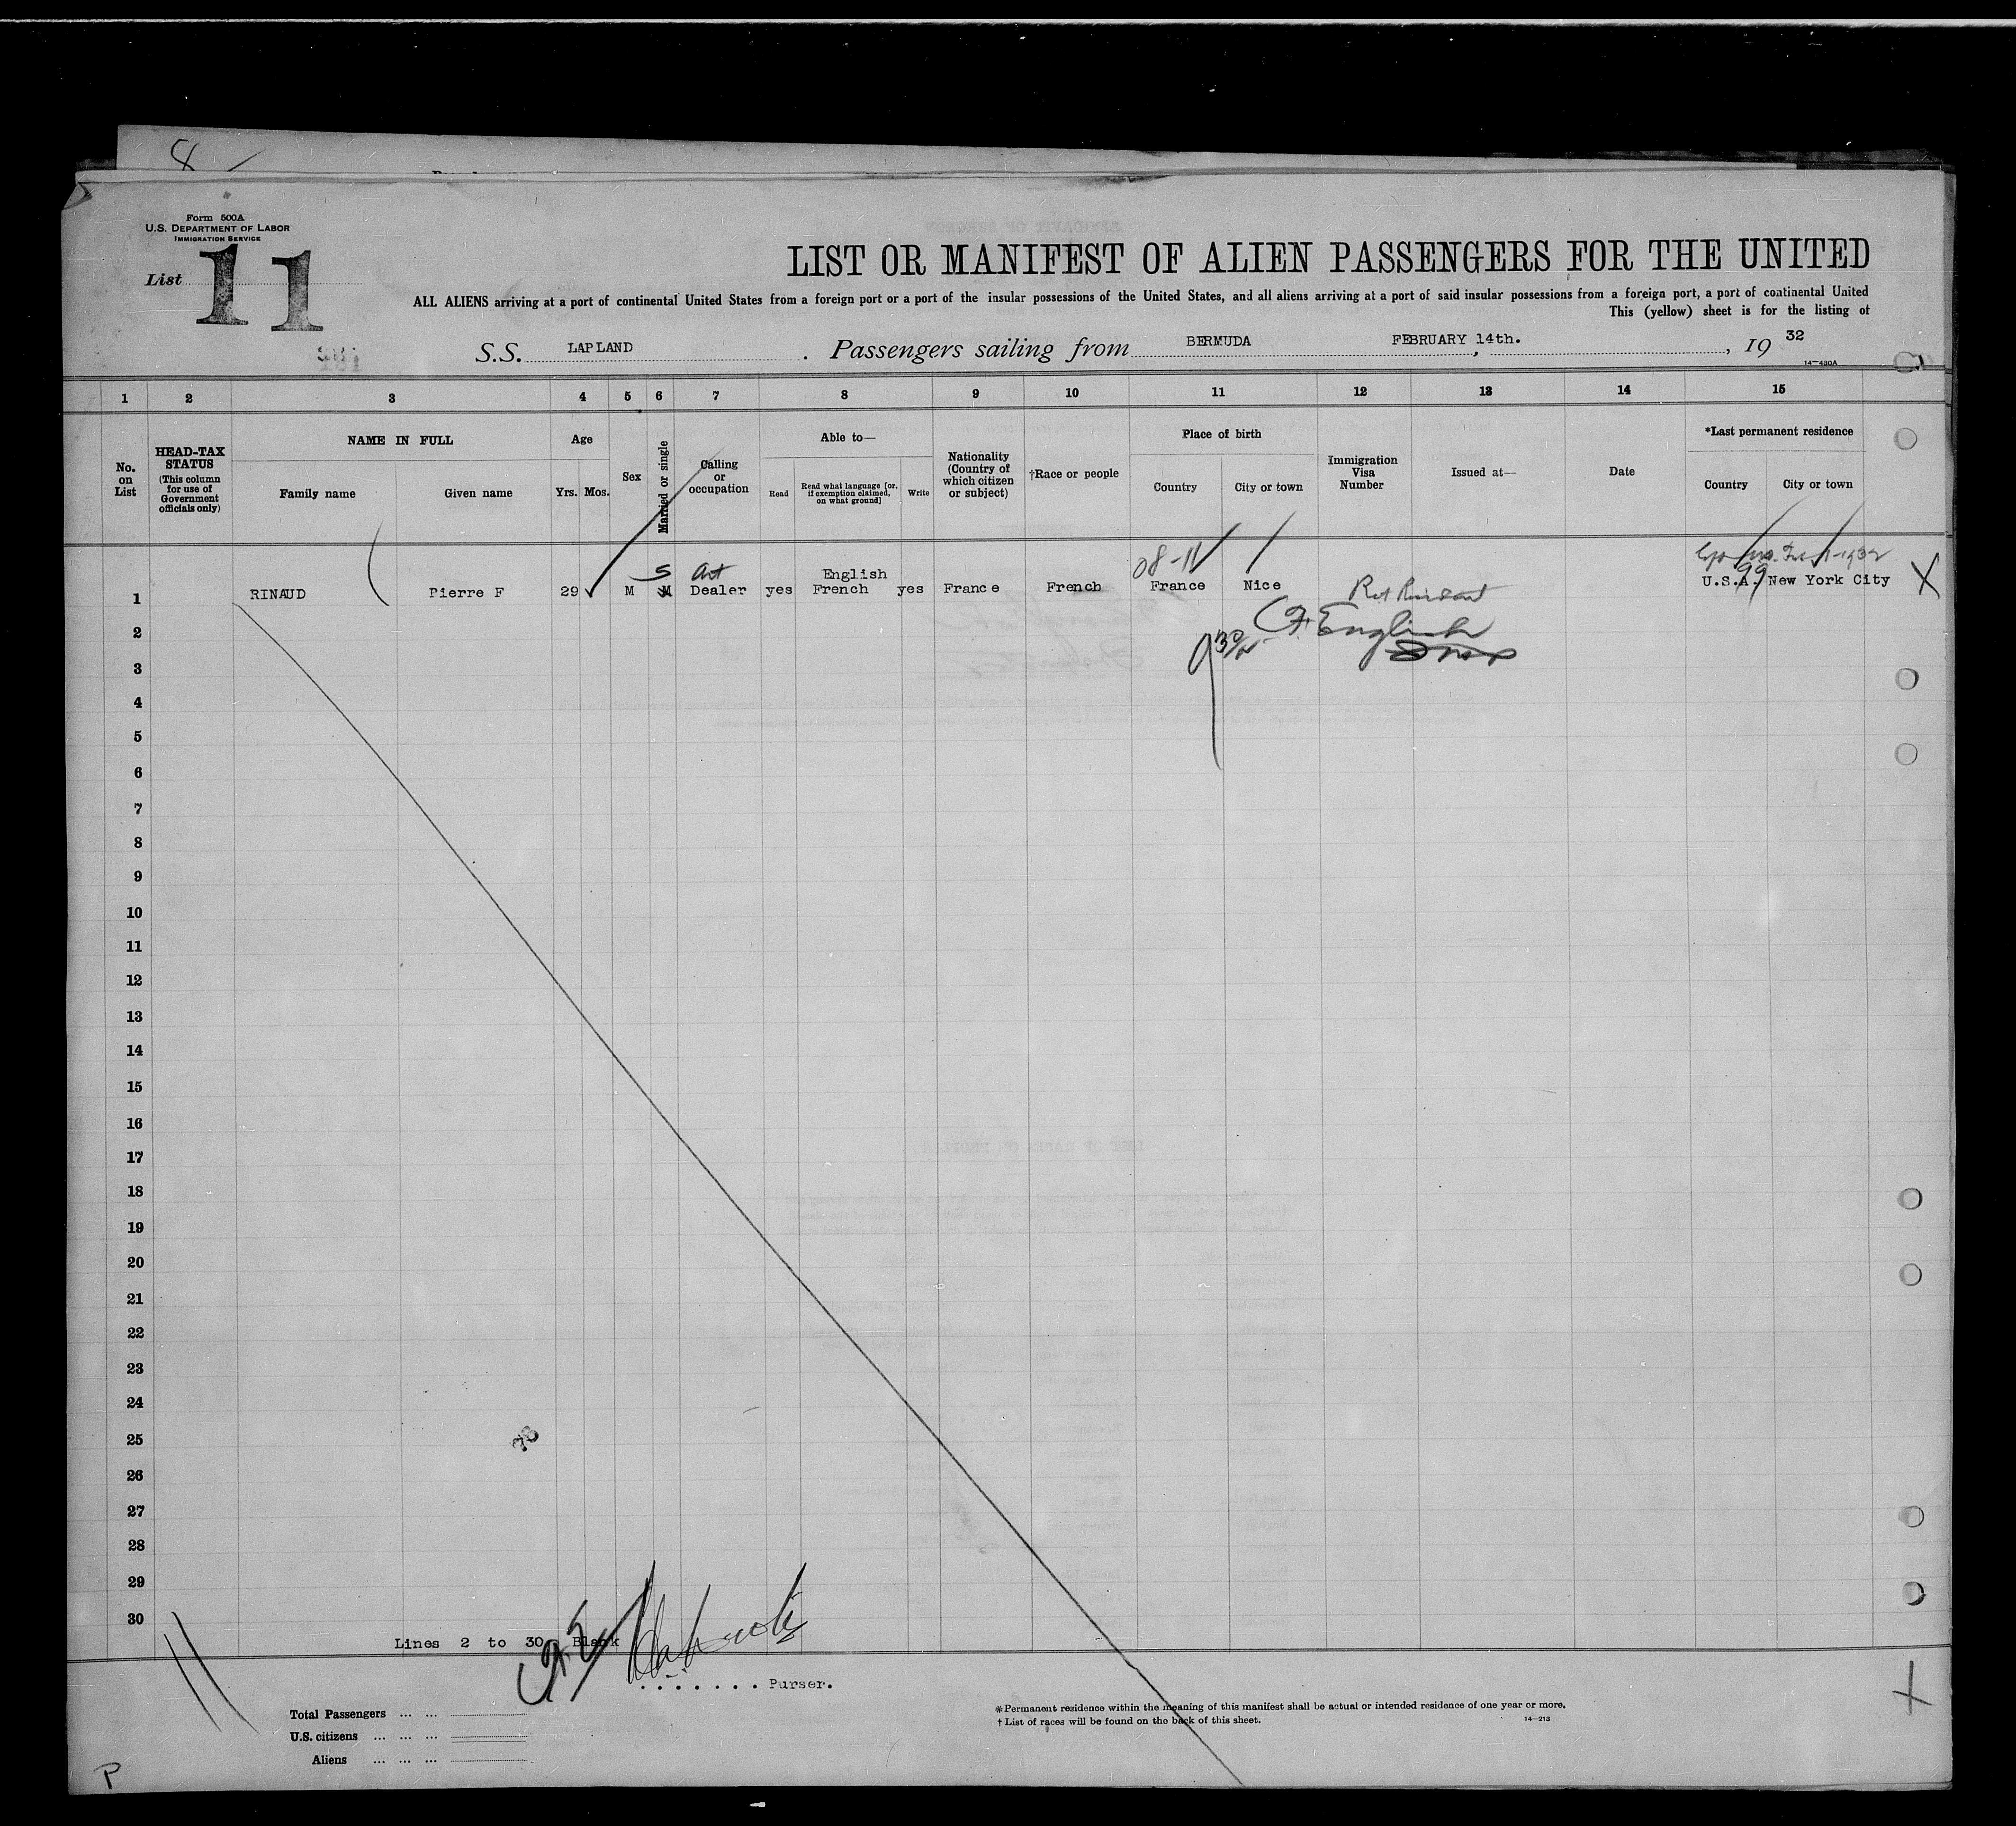 8
Form 500A
U.S. DEPARTMENT OF LABOR
IMMIGRATION SERVICE
List 11
LIST OR MANIFEST OF ALIEN PASSENGERS FOR THE UNITED
ALL ALIENS arriving at a port of continental United States from a foreign port or a port of the insular possessions of the United States, and all aliens arriving at a port of said insular possessions from a foreign port, a port of continental United
This (yellow) sheet is for the listing of
S.S. LAPLAND . Passengers sailing from BERMUDA , FEBRUARY 14th. , 19 32
14—430A
1 2 3 4 5 6 7 8 9 10 11 12 13 14 15
No. on List
HEAD-TAX STATUS (This column for use of Government officials only)
NAME IN FULL
Family name Given name
Age
Yrs. Mos.
Sex
Married or single
Calling or occupation
Able to—
Read Read what language [or, if exemption claimed, on what ground] Write
Nationality (Country of which citizen or subject)
†Race or people
Place of birth
Country City or town
Immigration Visa Number
Issued at—
Date
*Last permanent residence
Country City or town
08-11
S Art English
1 RINAUD Pierre F 29 M M Dealer yes French yes France French France Nice U.S.A. New York City X
99
2
F. English
3
4
5
6
7
8
9
10
11
12
13
14
15
16
17
18
19
20
21
22
23
24
25
26
27
28
29
30
Lines 2 to 30 Blank
. . . . . . . Purser.
Total Passengers ... ...
U.S. citizens ... ... ...
Aliens ... ... ...
*Permanent residence within the meaning of this manifest shall be actual or intended residence of one year or more.
†List of races will be found on the back of this sheet.
14—213
P